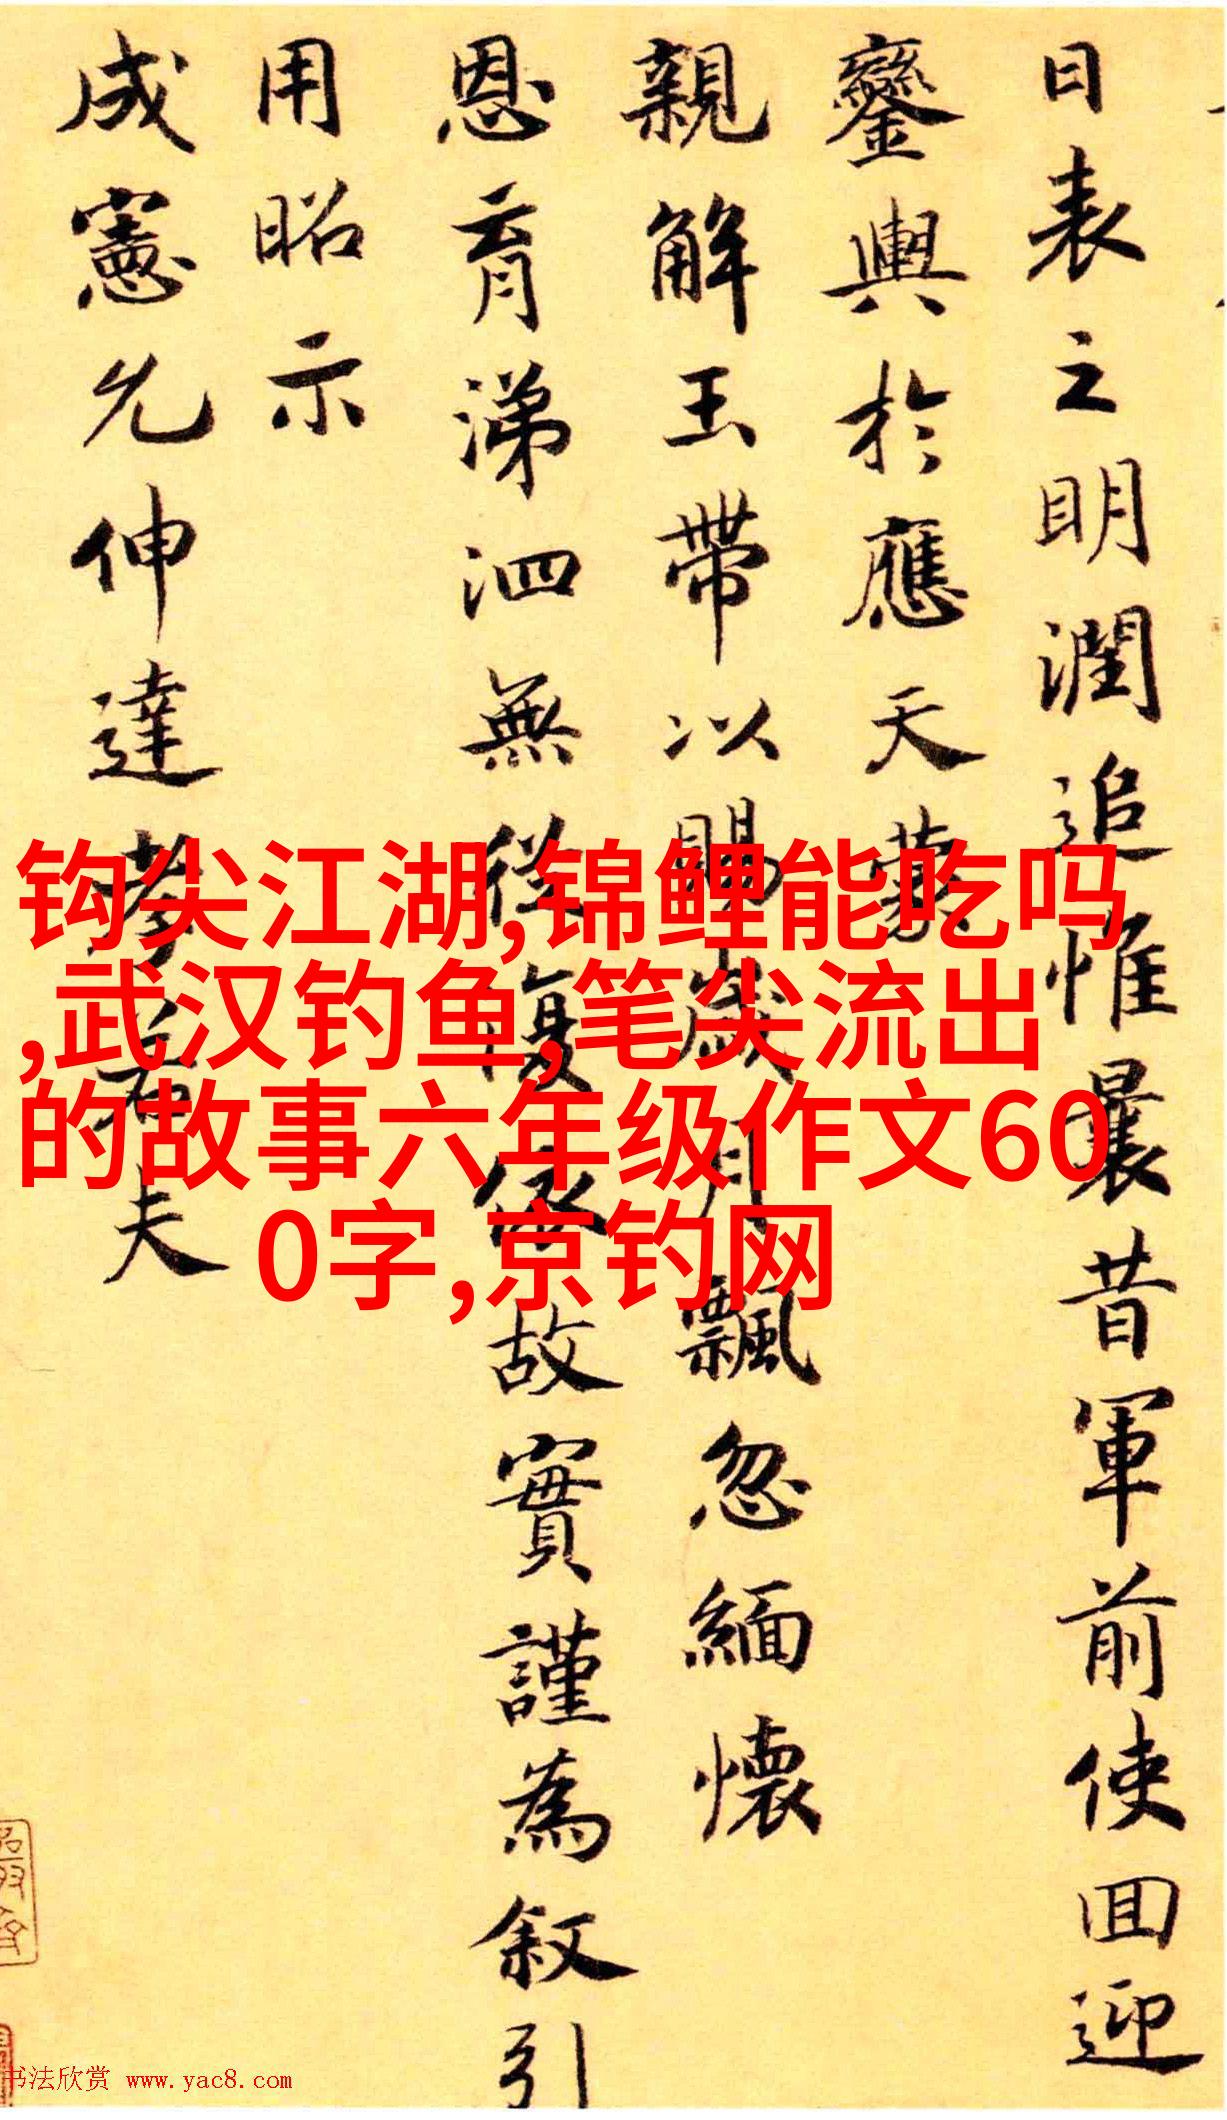 日表之明潤追惟曩昔軍前使回迎
鑾輿於應天蒙
親解玉帶以賜歲月飄忽緬懷
恩育涕泗無從復故實謹為叙引
用昭示
成憲允伸達孝若夫
钩尖江湖,锦鲤能吃吗
,武汉钓鱼,笔尖流出
的故事六年级作文60
0字,京钓网
书法欣赏 www.yac8.com